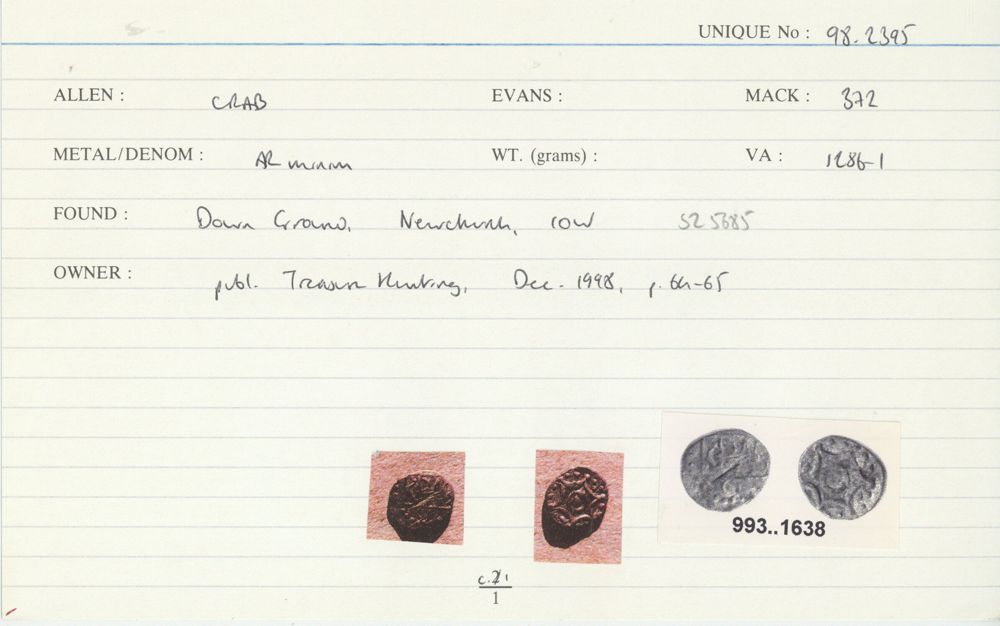 UNIQUE No : 98.2395
ALLEN : CRAB EVANS : MACK : 372
METAL/DENOM : AR minim WT. (grams) : VA : 1286-1
FOUND : Down Ground, Newchurch, IOW SZ 5685
OWNER : publ. Treasure Hunting, Dec. 1998, p. 64-65
993..1638
1